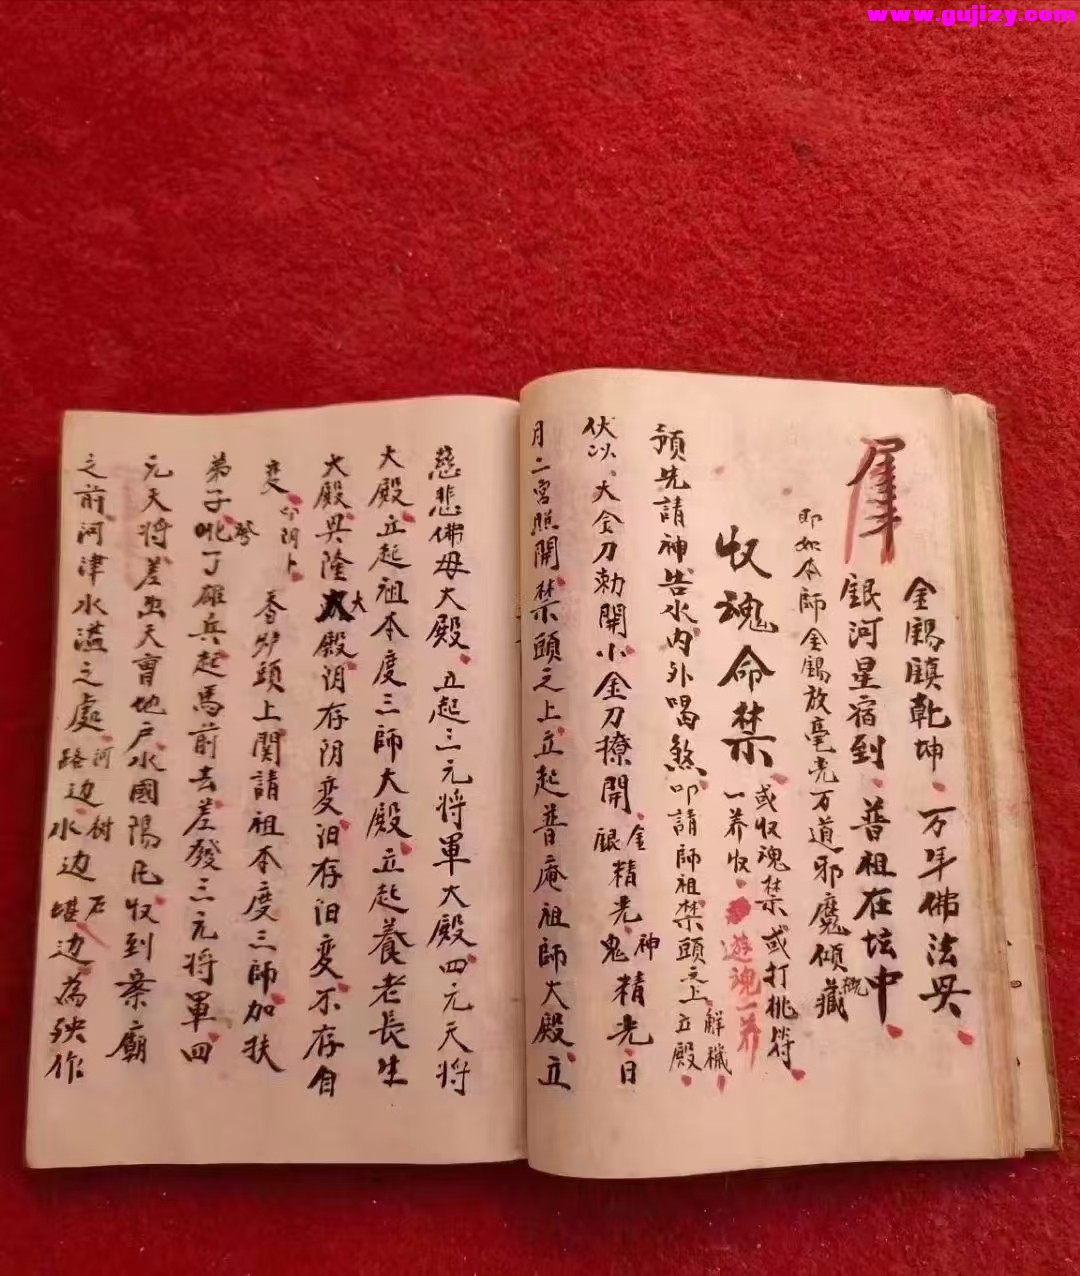 www.gujizy.com
金錫鎮乾坤、万年佛法興、
銀河星宿到、普祖在坛中、
即如本師金錫放毫光万道邪魔傾藏
收魂命禁
或收魂禁或打桃符、
一养收、遊魂一养
預先請神告水、内外喝煞、叩請師祖禁頭之上、立殿、
解穢、
伏以、大金刀勅開小金刀撩開、金銀精光、神鬼精光、日
月二宮照開、禁頭之上、立起普庵祖師大殿、立
慈悲佛母大殿、立起三元将軍大殿、四元天将
大殿、立起祖本度三師大殿、立起養老長生
大殿、興隆大殿、阴存阴变、汩存汩变、不存自
变、香炉頭上関請祖本度三師加扶
弟子叱了雄兵起馬前去、差發三元将軍、四
元天将差出天曹地户、水國陽氏、收到亲廟
之前、河津水溢之處、河路边、树水边、石堪边、為殃作